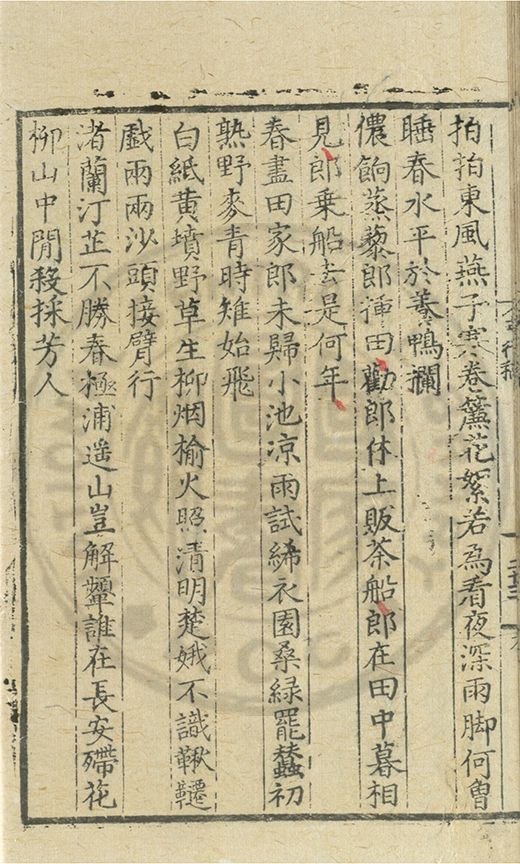 拍拍東風燕子寒卷簾花絮若爲看夜深雨脚何曾
睡春水平於養鴨欄
儂餉蒸藜郎挿田勸郎休上販茶船郎在田中暮相
見郎乗船去是何年
春盡田家郎未歸小池凉雨試絺衣園桑緑罷蠶初
熟野麥青時雉始飛
白紙黄墳野草生柳烟榆火照清明楚娥不識鞦韆
戯兩兩沙頭接臂行
渚蘭汀芷不勝春極浦遥山豈解顰誰在長安殢花
柳山中閒殺採芳人